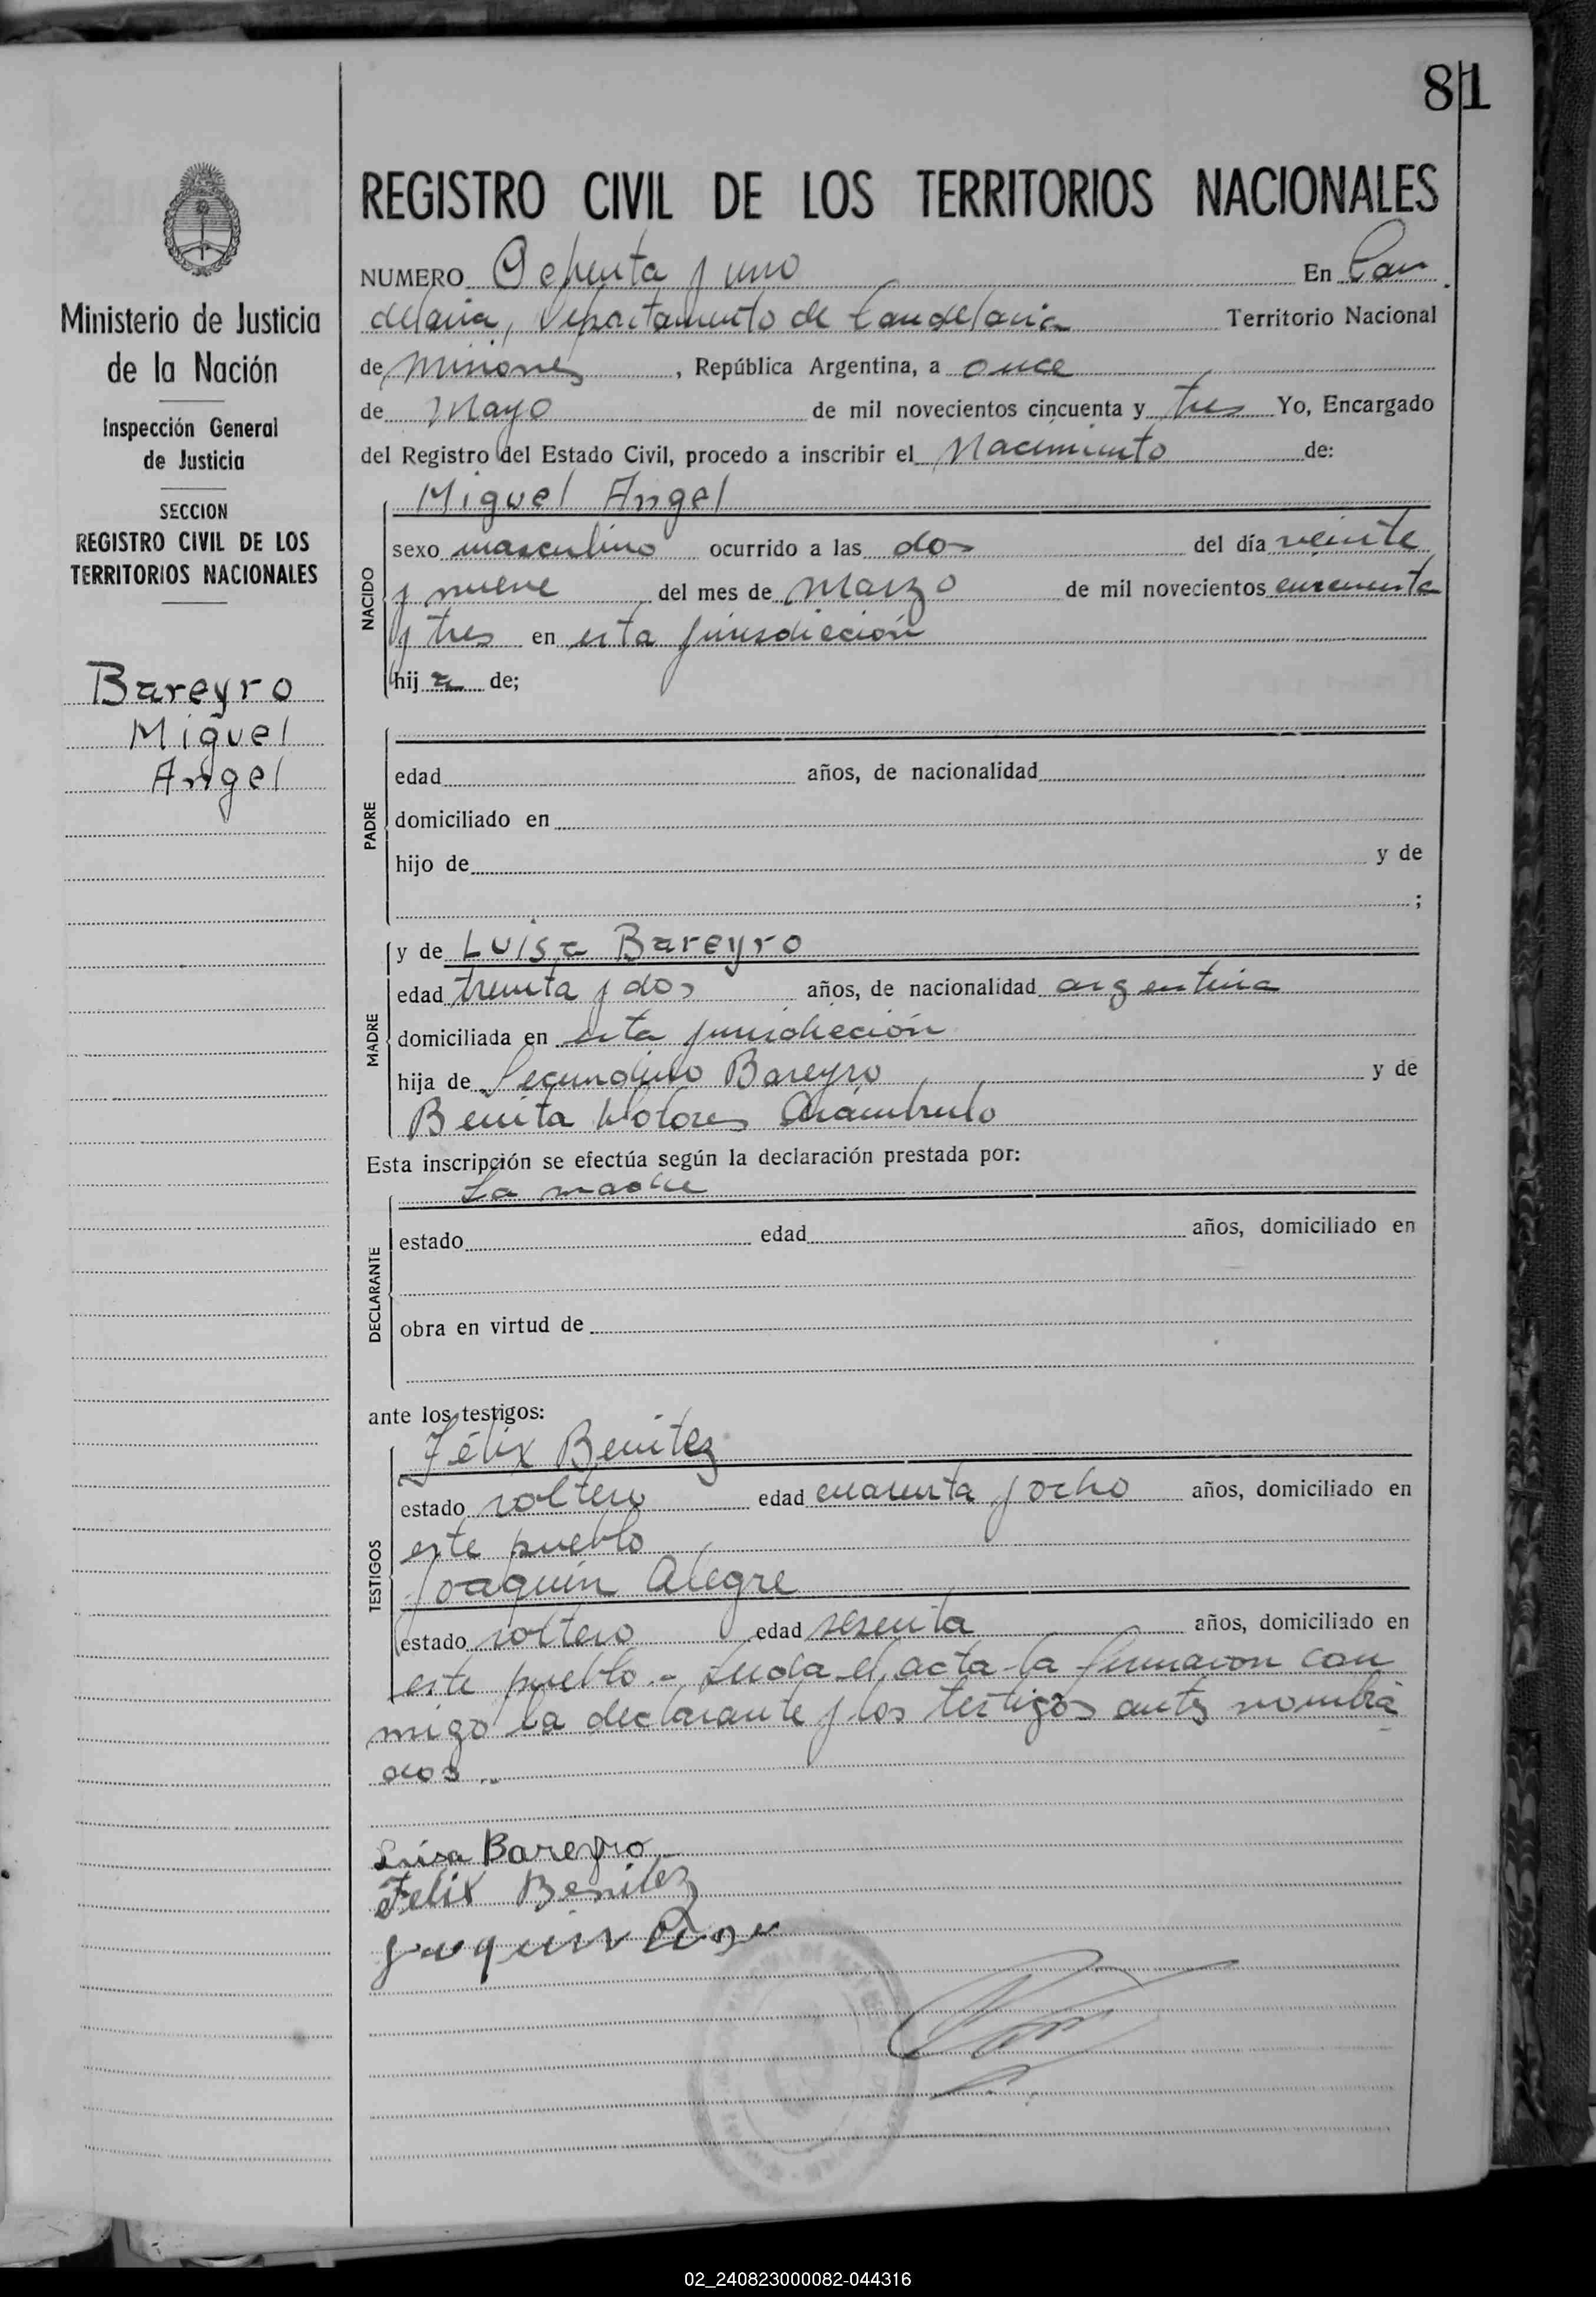 81
Ministerio de Justicia
de la Nación
Inspección General
de Justicia
SECCION
REGISTRO CIVIL DE LOS
TERRITORIOS NACIONALES
Bareyro
Miguel
Angel
REGISTRO CIVIL DE LOS TERRITORIOS NACIONALES
NUMERO Ochenta y uno En Can
delaria, Departamento de Candelaria Territorio Nacional
de Misiones, República Argentina, a once
de Mayo de mil novecientos cincuenta y tres Yo, Encargado
del Registro del Estado Civil, procedo a inscribir el Nacimiento de:
NACIDO
Miguel Angel
sexo masculino ocurrido a las dos del día veinte
y nueve del mes de Marzo de mil novecientos cincuenta
y tres en esta jurisdicción
hij a de;
PADRE
edad años, de nacionalidad
domiciliado en
hijo de y de
;
MADRE
y de Luisa Bareyro
edad treinta y dos años, de nacionalidad argentina
domiciliada en esta jurisdicción
hija de Secundino Bareyro y de
Benita Dolores
Esta inscripción se efectúa según la declaración prestada por:
DECLARANTE
La madre
estado edad años, domiciliado en
obra en virtud de
ante los testigos:
TESTIGOS
Félix Benítez
estado soltero edad cuarenta y ocho años, domiciliado en
este pueblo
Joaquín Alegre
estado soltero edad sesenta años, domiciliado en
este pueblo.- Leida el acta la firmaron con
migo la declarante y los testigos antes nombra
dos.-
Luisa Bareyro
Felix Benitez
Joaquin
02_240823000082-044316